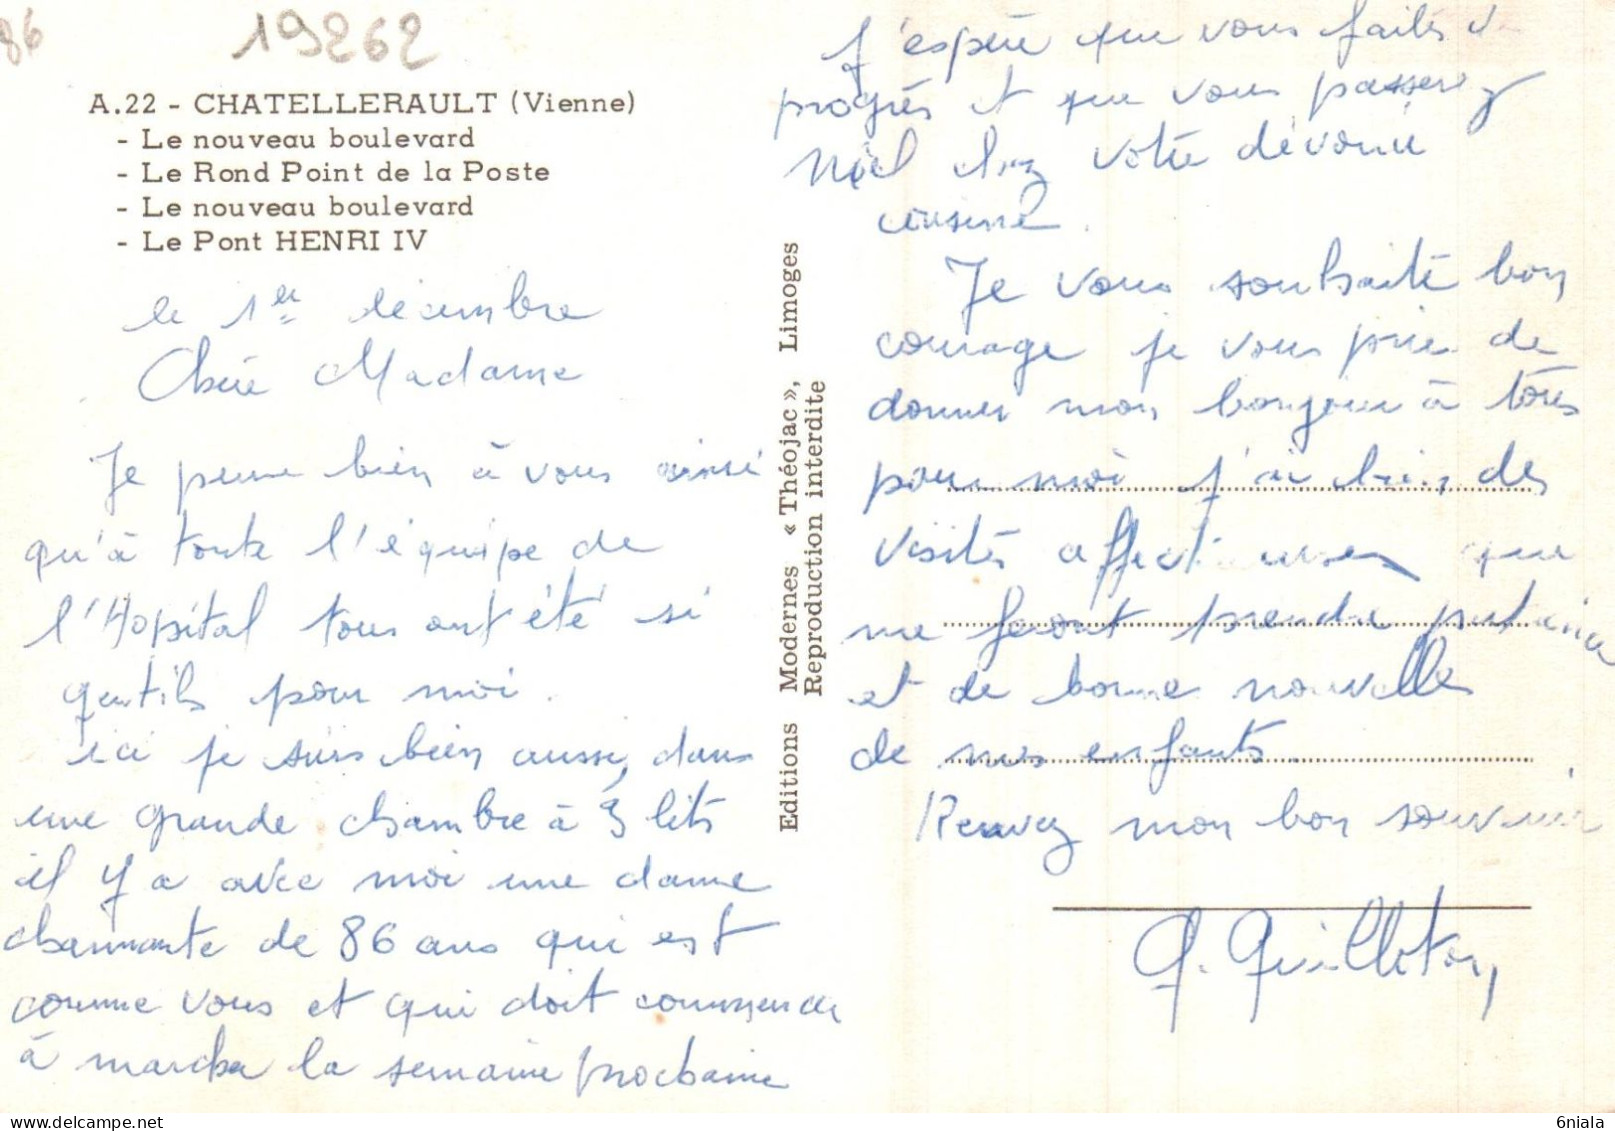 86
19262
A.22 - CHATELLERAULT (Vienne)
- Le nouveau boulevard
- Le Rond Point de la Poste
- Le nouveau boulevard
- Le Pont HENRI IV
le 1er décembre
Chère Madame
Je pense bien à vous ainsi
qu'à toute l'équipe de
l'Hopital tous ont été si
gentils pour moi.
ici je suis bien aussi, dans
une grande chambre à 3 lits
il y a avec moi une dame
charmante de 86 ans qui est
comme vous et qui doit commencer
à marcher la semaine prochaine
Editions Modernes « Théojac », Limoges
Reproduction interdite
J'espère que vous faites de
progrès et que vous passerez
Noël chez votre dévouée
cousine.
Je vous souhaite bon
courage je vous prie de
donner mon bonjour à tous
pour moi j'ai bien des
visites affectueuses que
me feront prendre patience
et de bonne nouvelles
de mes enfants.
Recevez mon bon souvenir
G. Guilloton
6niala